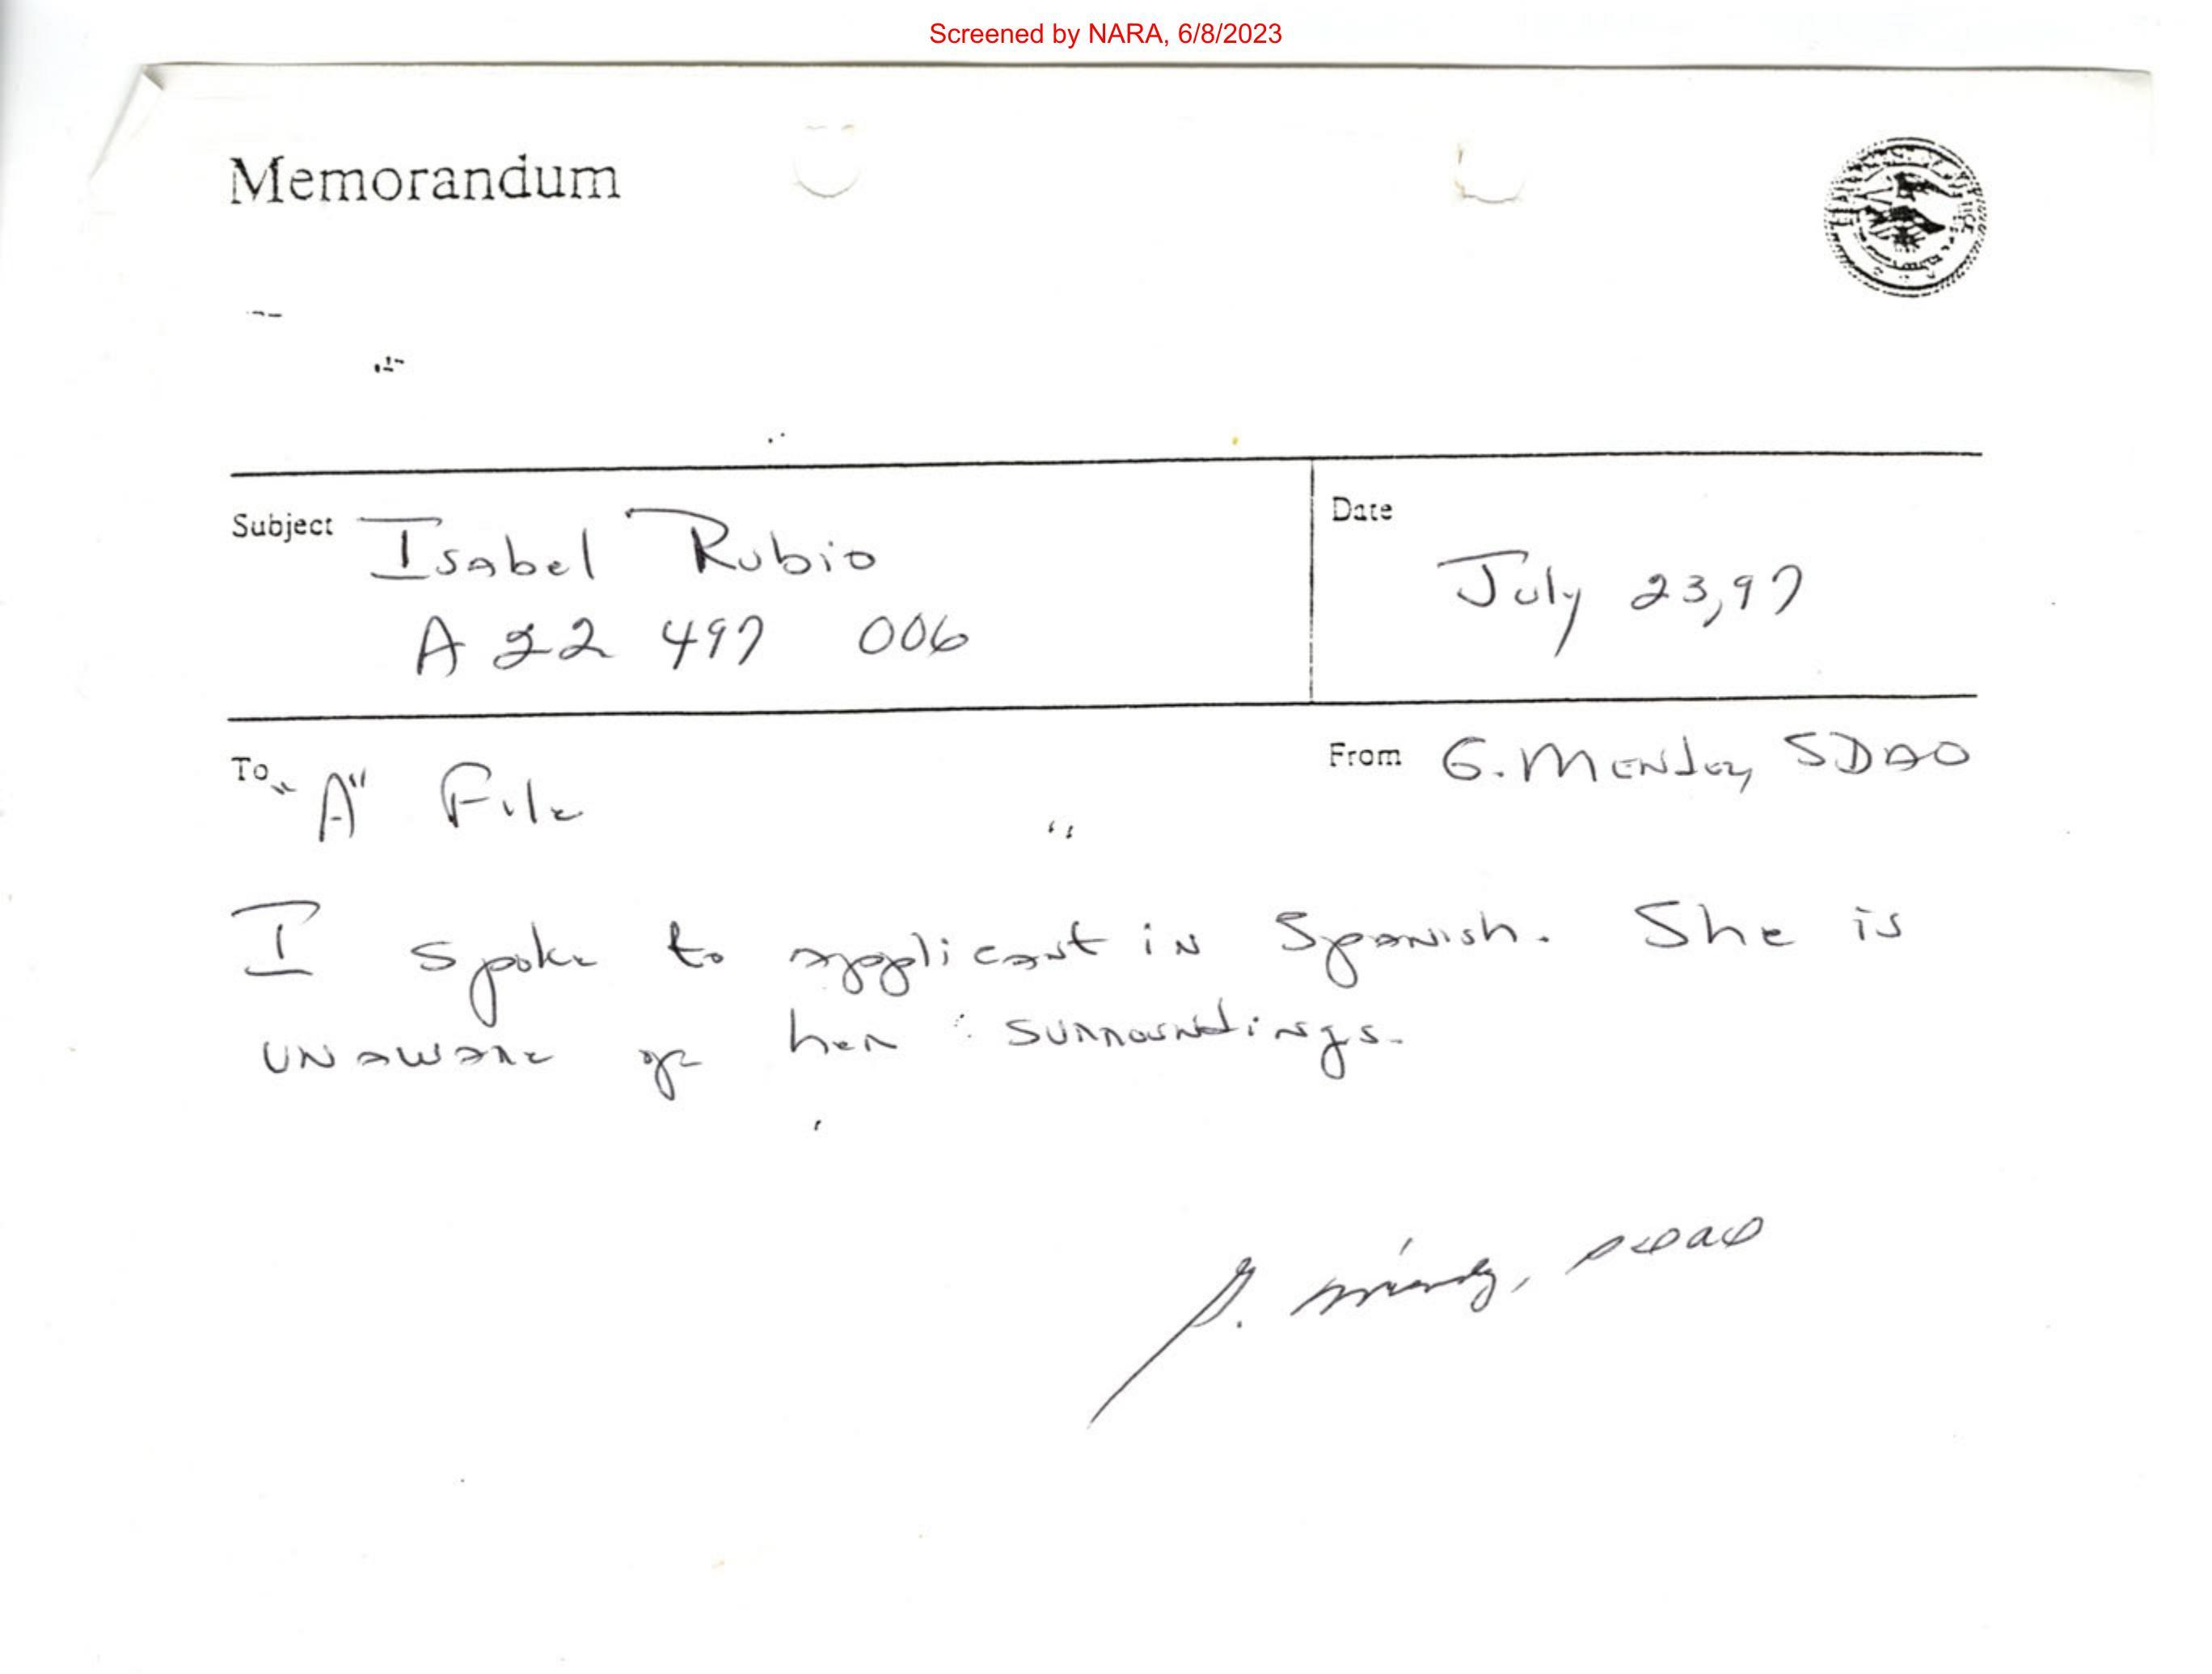 Screened by NARA, 6/8/2023
Memorandum
Subject Isabel Rubio
A 22 497 006
Date
July 23, 97
To "A" File
From G. Mendez, SDAO
I spoke to applicant in Spanish. She is
unaware of her surroundings.
G. Mendez, SDAO